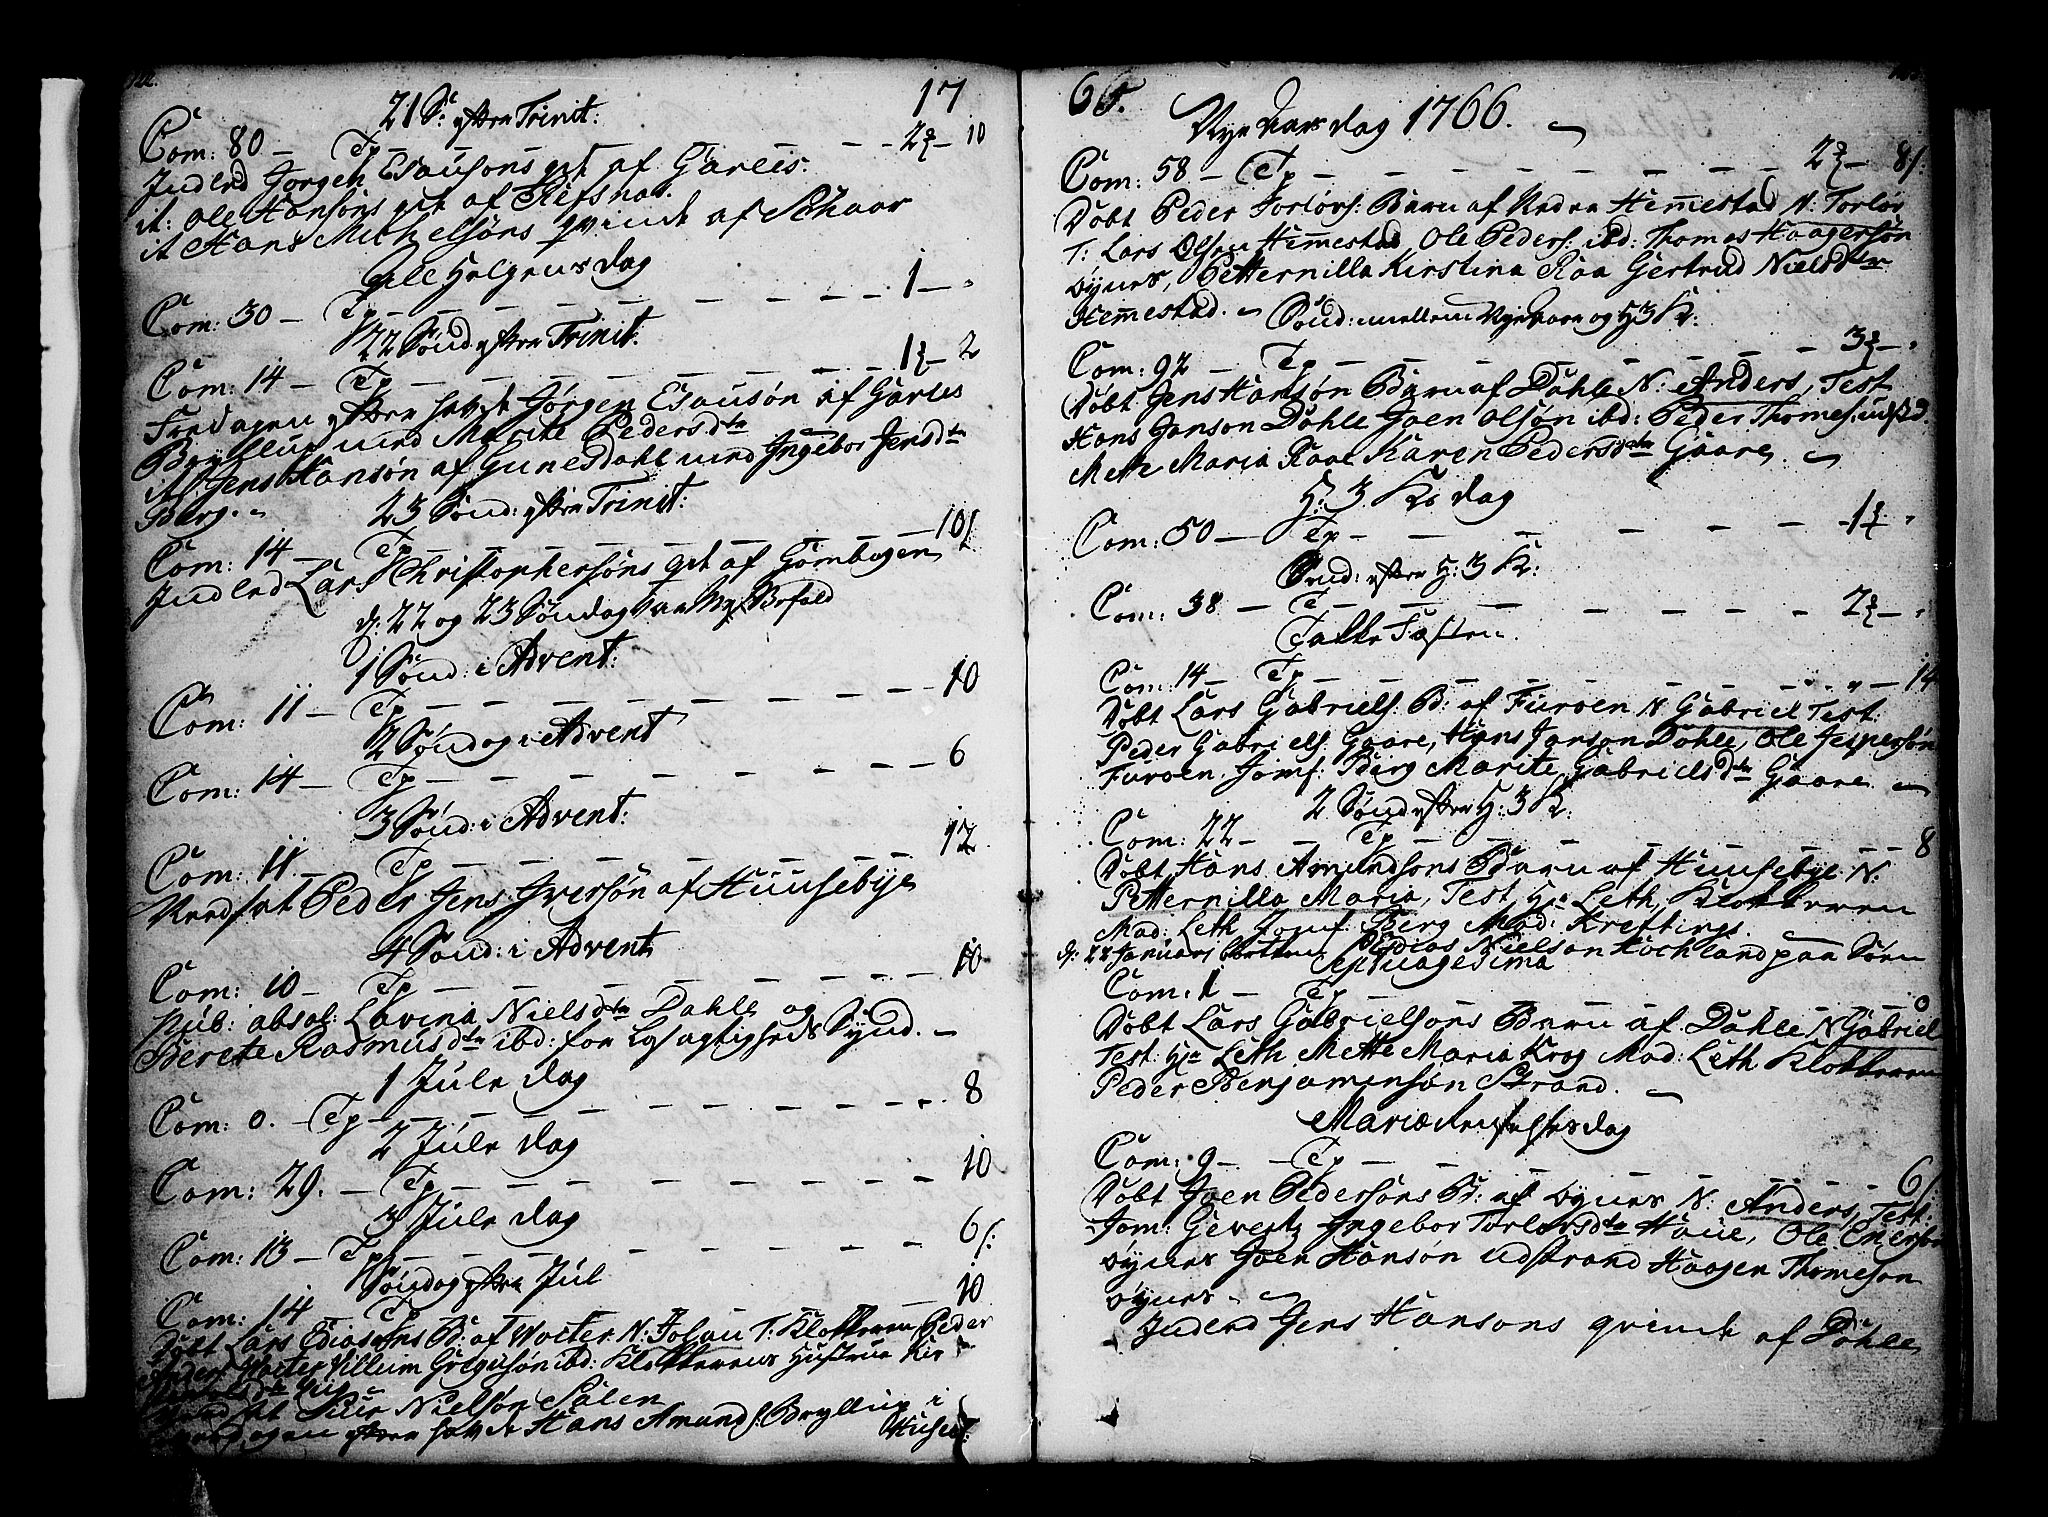 17
21 S: efter Trinit:
Com: 80 — Tp — — 2 — 10
Inderd Jørgen Esausøns qvt af Garees.
it: Ole Hansøns qvt af Refsnas.
it Hans Michelsøns qvinde af Schaar
Alle Helgens dag
Com: 30 — Tp — — — — — — 1 —
22 Sønd: efter Trinit:
Com: 14 — Tp — — — — — 1 — 2
Fredagen efter hafde Jørgen Esausøn af Garees
Bryllup med Marite Pedersdtr
it Jens Hansøn af Gunesdahl med Ingebor Jensdtr
Berg.
23 Sønd: efter Trinit:
Com: 14 — Tp — — — — — — 10
Inderd Lars Christophersøns qvt af Gombogen
d: 22 og 23 Søndag
1 Sønd: i Advent:
Com: 11 — Tp — — — — — — 10
2 Søndag i Advent
Com: 14 — Tp — — — — — — 6
3 Sønd: i Advent:
Com: 11 Tp — — — — — — 12
Jens Iversøn af Huusebye
4 Sønd: i Advent
Com: 10 — Tp — — — — — — 10
Pub: absol: Lavina Nielsdtr Dahle og
Berete Rasmusdtr ibd: for Løsagtigheds Synd. —
1 Jule dag
Com: 0. — Tp — — — — — — 8
2 Jule dag
Com: 29. — Tp — — — — — — 10
3 Jule dag
Com: 13 — Tp — — — — — — 6
Søndag efter Jul
Com: 14 Tp — — — — — — 10
Døbt Lars Ediasøns B: af Wolter N: Johan T: Klokkeren, Peder
Anders: Wolter Villum Gregusøn ibd: Klokkerens Hustrue Kir
Siur Nielsøn Salen
efter hafde Hans Amunds: Bryllup i
Huseb:
66.
Nyeaars dag 1766.
Com: 58 — Tp — — — — — — 2 — 8
Døbt Peder Torlørs: Barn af Nedre Hemmestad N: Torlør
T: Lars Olsøn Hemmestad, Ole Peders: ibd: Thomas Haagersøn
Dynes, Petternilla Kirstina Raa Gertrud Nielsdtr
Hemmestad. — Sønd: mellem Nyeaar og H 3 K:
Com: 92 — Tp — — — — — — 3 —
Døbt Jens Hansøn Barn af Dahle N: Anders, Test
Hans Janson Dahle Joen Olsøn ibd: Peder Thomes:
Mette Maria Raae Karen Pedersdtr Gaare
H: 3 K: dag
Com: 50 — Tp — — — — — 1
Sønd: efter H: 3 K:
Com: 38 — T — — — — — 2 —
Takke Fasten.
Com: 14 — Tp — — — — — — 14
Døbt Lars Gabriels: B: af Furoen N Gabriel Test:
Peder Gabriels: Gaare, Hans Janson Dahle, Ole Jespersøn
Furoen, Jomf: Berg Marite Gabrielsdtr Gaare
2 Sønd efter H: 3 K:
Com: 22 — — Tp — — — — — 8
Døbt Hans Amundsons Barn af Huusebye N:
Petternilla Maria, Test Hr Leth, Klokkeren
Mad: Leth Jomf: Berg Mad: Kreftings.
d: 22 Januari Edias Nielson Kochland paa Søen
Septuagesima
Com: 1 — Tp — — — — 0
Døbt Lars Gabrielsons Barn af Dahle N Gabriel
Test: Hr Leth Mette Maria Krog Mad: Leth Klokkeren
Peder Benjaminsøn Strand.
Mariæ Renselses dag
Com: 9 — Tp — — — — — 6
Døbt Joen Pedersøns B: af Dynes N: Anders, Test:
Jom: Geverts Ingebor Torlorsdtr Haue, Ole Enersøn
Dynes Joen Hansøn Udstrand Haagen Thomesøn
Dynes.
Inderd Jens Hansons qvinde af Dahle